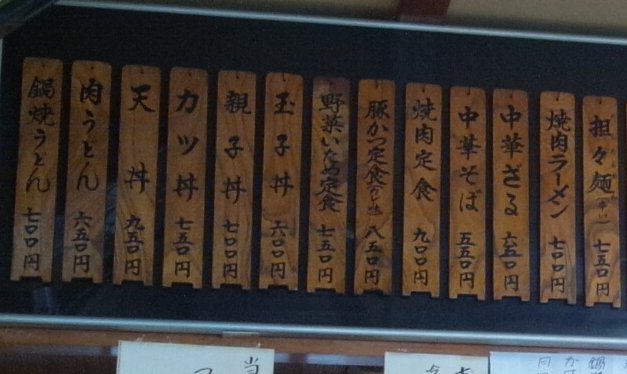 担々麺 七五〇円
焼肉ラーメン 七〇〇円
中華ざる 六五〇円
中華そば 五五〇円
焼肉定食 九〇〇円
豚かつ定食 八五〇円
野菜いため定食 七五〇円
玉子丼 六〇〇円
親子丼 七〇〇円
カツ丼 七五〇円
天丼 九五〇円
肉うどん 六五〇円
鍋焼うどん 七〇〇円